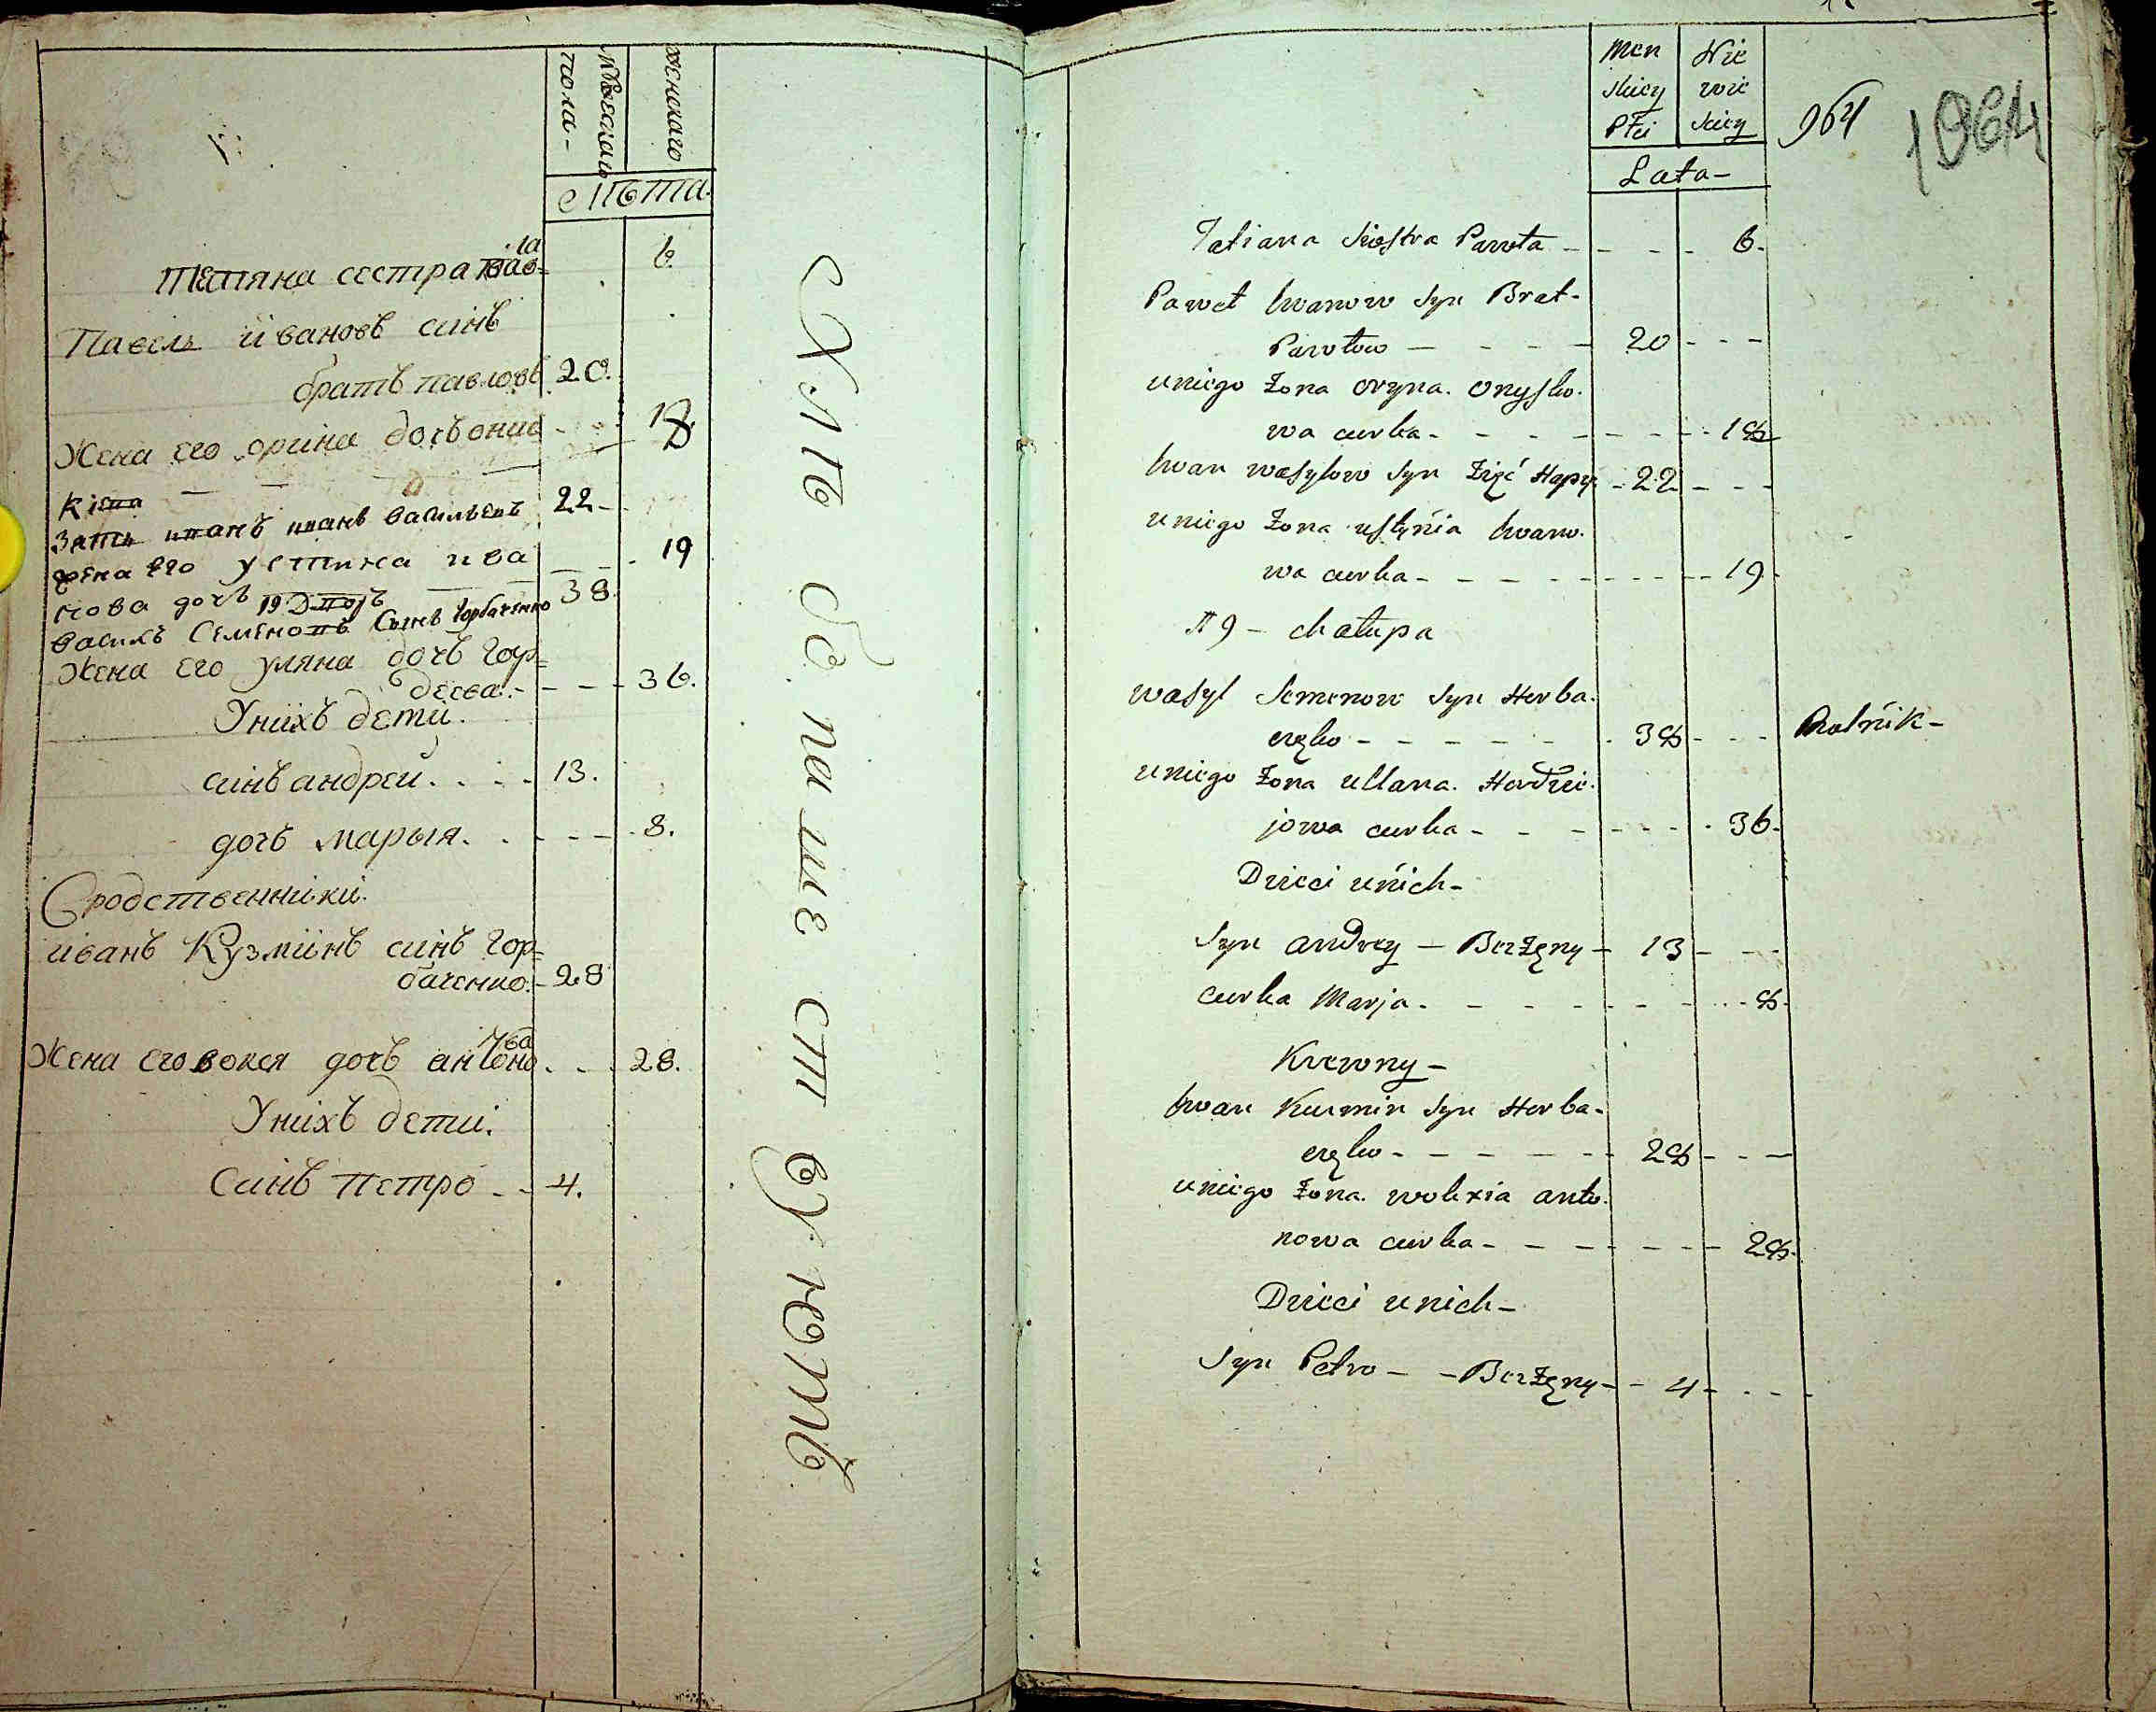 мужескаго
пола-
женскаго
лѣта.
Тетяна сестра пав=
ла
6.
Павелъ ивановъ синъ
братъ павловъ 20.
Жена его орина дочъ онис
18.
кіева
зать иванъ васильевъ 22-
жена его устина ива
19
нова дочъ 19 Дворъ
василъ Семеновъ Сынъ горбаченко 38.
Жена его уляна дочъ гор=
деева.- - - - 36.
Унихъ дети.
синъ андреи. . . - 13.
дочъ марыя. . - - - - 8.
Сродственники.
иванъ Кузминъ синъ гор=
баченко.- 28
Жена его вокся дочъ антоно
ва
. . . 28.
Унихъ дети.
Синъ петро - - 4.
Men
skiey
Płci
Nie
wie
sciey
Lata-
964
1964
Tatiana siostra Pawła - - - - 6.
Paweł Iwanow syn Brat-
Pawłow - - - - - 20 - - -
uniego żona oryna. Onysko-
wa curka - - - - - - - 18
Iwan wasylow syn Zięć Hapy - 22 - - -
uniego żona ustynia Iwano-
wa curka - - - - - - - - - 19.
N 9 - chałupa
wasyl Semenow syn Horba-
częko - - - - - - - 38 - - - Rolnik -
uniego żona ullana. Hordzie-
jowa curka - - - - - - - 36.
Dzieci unich-
syn andrey - Berżęny - 13 - - -
curka Marja. - - - - - - - - 8.
Krewny -
Iwan Kuzmin syn Horba-
częko - - - - - - - 28 - - -
uniego żona. wolexia anto-
nowa curka - - - - - - - 28.
Dzieci unich-
syn Petro - - Berżęny - - 4 - - - -